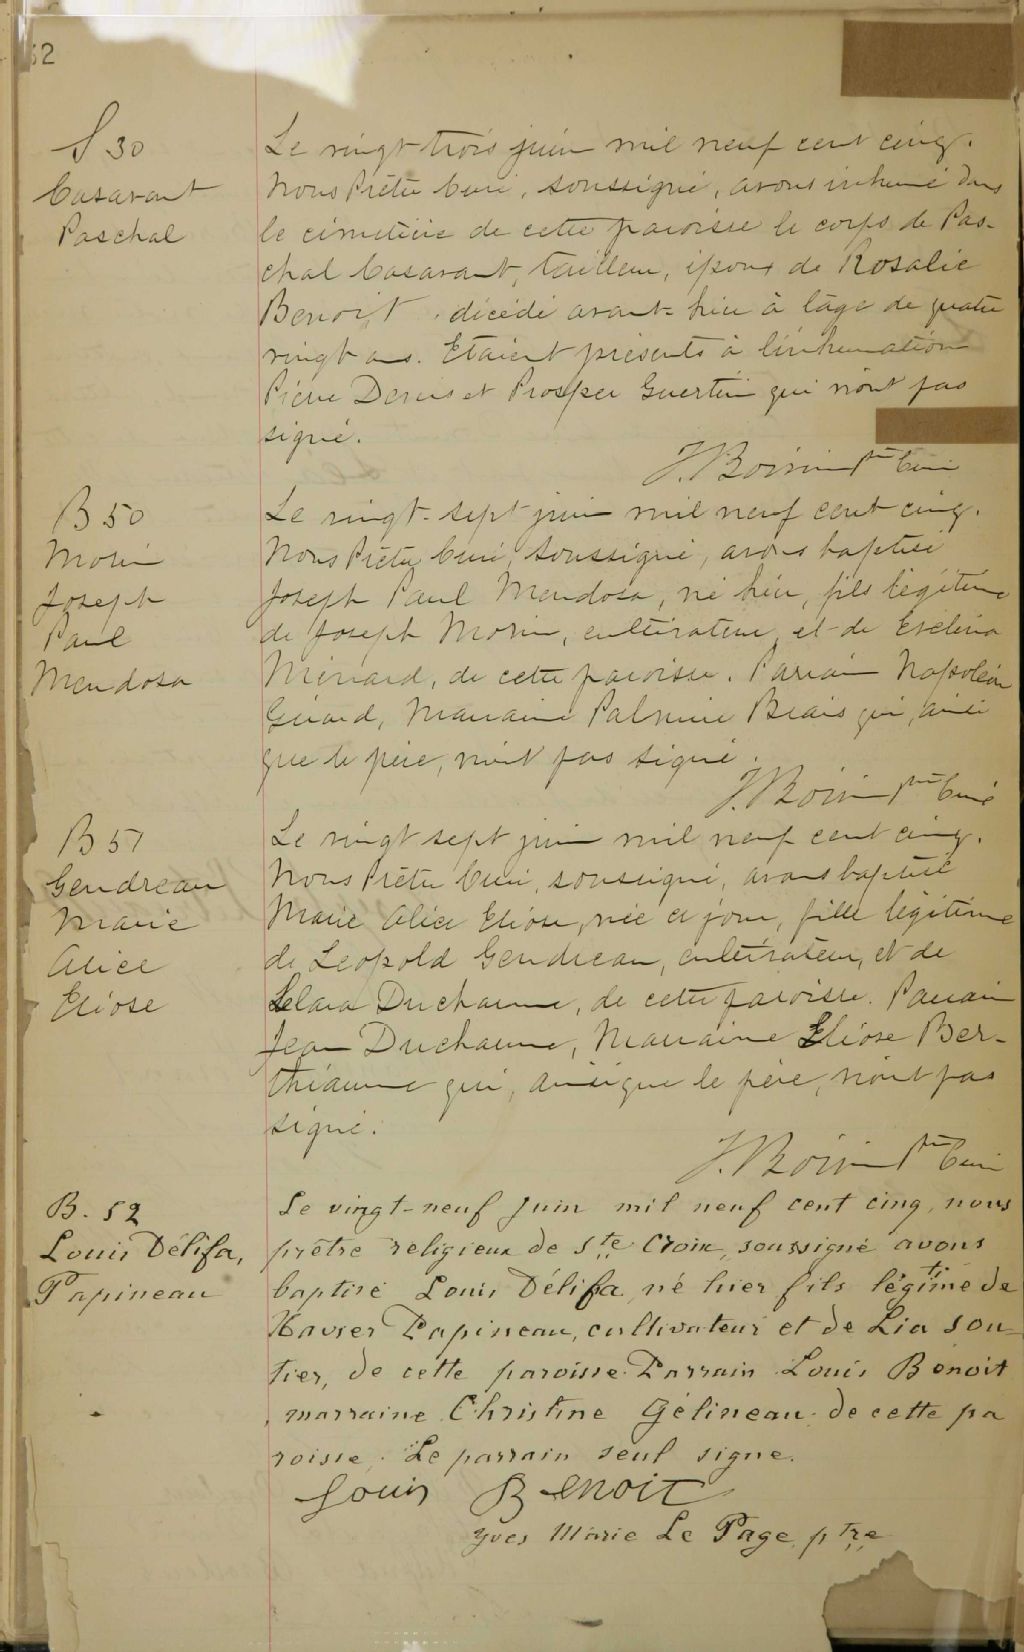 52
S 30
Casavant
Paschal
Le vingt trois juin mil neuf cent cinq.
Nous Prêtre Curé, soussigné, avons inhumé dans
le cimetière de cette paroisse le corps de Pas-
chal Casavant, tailleur, époux de Rosalie
Benoit, décédé avant-hier à l'âge de quatre
vingt ans. Etaient présents à l'inhumation
Pierre Denis et Prosper Guertin qui n'ont pas
signé.
J. Boivin Ptre Curé
B 50
Morin
Joseph
Paul
Mendosa
Le vingt-sept juin mil neuf cent cinq.
Nous Prêtre Curé, soussigné, avons baptisé
Joseph Paul Mendosa, né hier, fils légitime
de Joseph Morin, cultivateur, et de Exelina
Ménard, de cette paroisse. Parrain Napoléon
Girard, Marraine Palmire Biais qui, ainsi
que le père, n'ont pas signé.
J. Boivin Ptre Curé
B 51
Gendreau
Marie
Alice
Eliose
Le vingt sept juin mil neuf cent cinq.
Nous Prêtre Curé, soussigné, avons baptisé
Marie Alice Eliose, née ce jour, fille légitime
de Leopold Gendreau, cultivateur, et de
Clara Ducharme, de cette paroisse. Parrain
Jean Ducharme, Marraine Eliose Ber-
thiaume qui, ainsi que le père, n'ont pas
signé.
J. Boivin Ptre Curé
B. 52
Louis Délifa,
Papineau
Le vingt-neuf Juin mil neuf cent cinq, nous
prêtre religieux de Ste Croix, soussigné avons
baptisé Louis Délifa, né hier fils légitime de
Xavier Papineau, cultivateur et de Lia Sou-
tier, de cette paroisse. Parrain Louis Benoit
, marraine Christine Gélineau de cette pa
roisse. Le parrain seul signe.
Louis Benoit
Yves Marie Le Page, ptre